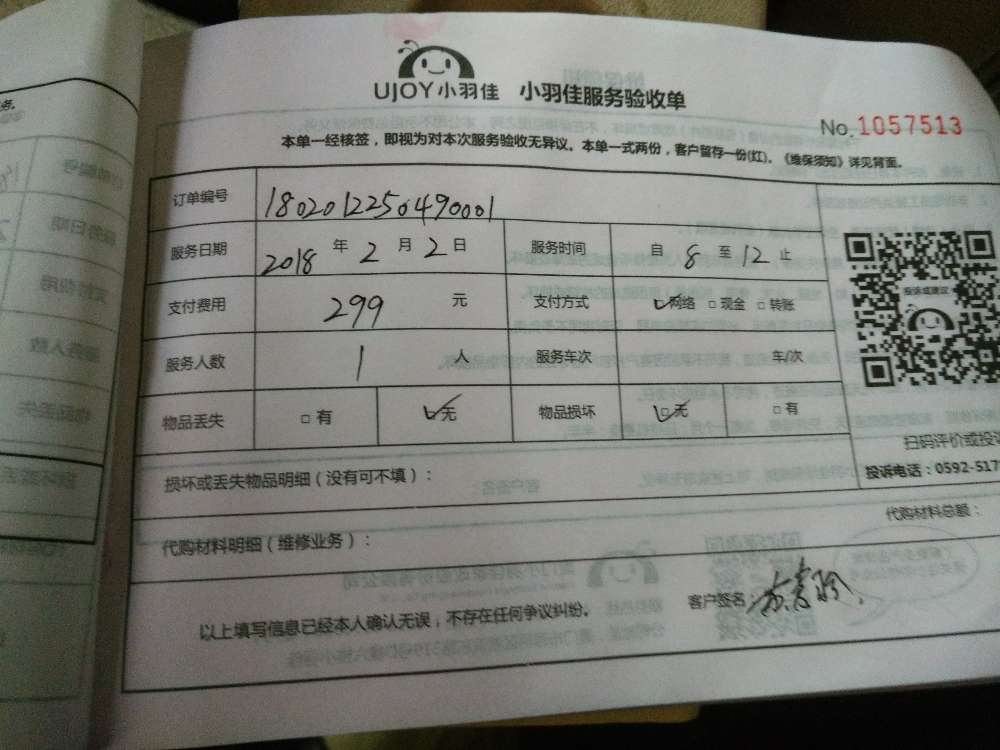 UJOY小羽佳 小羽佳服务验收单
No.1057513
本单一经核签，即视为对本次服务验收无异议。本单一式两份，客户留存一份(红)。《维保须知》详见背面。
订单编号 1802012250490001
服务日期 2018年2月2日 服务时间 自8至12止
支付费用 299元 支付方式 网络 □现金 □转账
服务人数 1人 服务车次 车/次
物品丢失 □有 无 物品损坏 无 □有
投诉或建议
扫码评价或投
投诉电话：0592-517
损坏或丢失物品明细（没有可不填）：
代购材料明细（维修业务）： 代购材料总额：
以上填写信息已经本人确认无误，不存在任何争议纠纷。 客户签名：